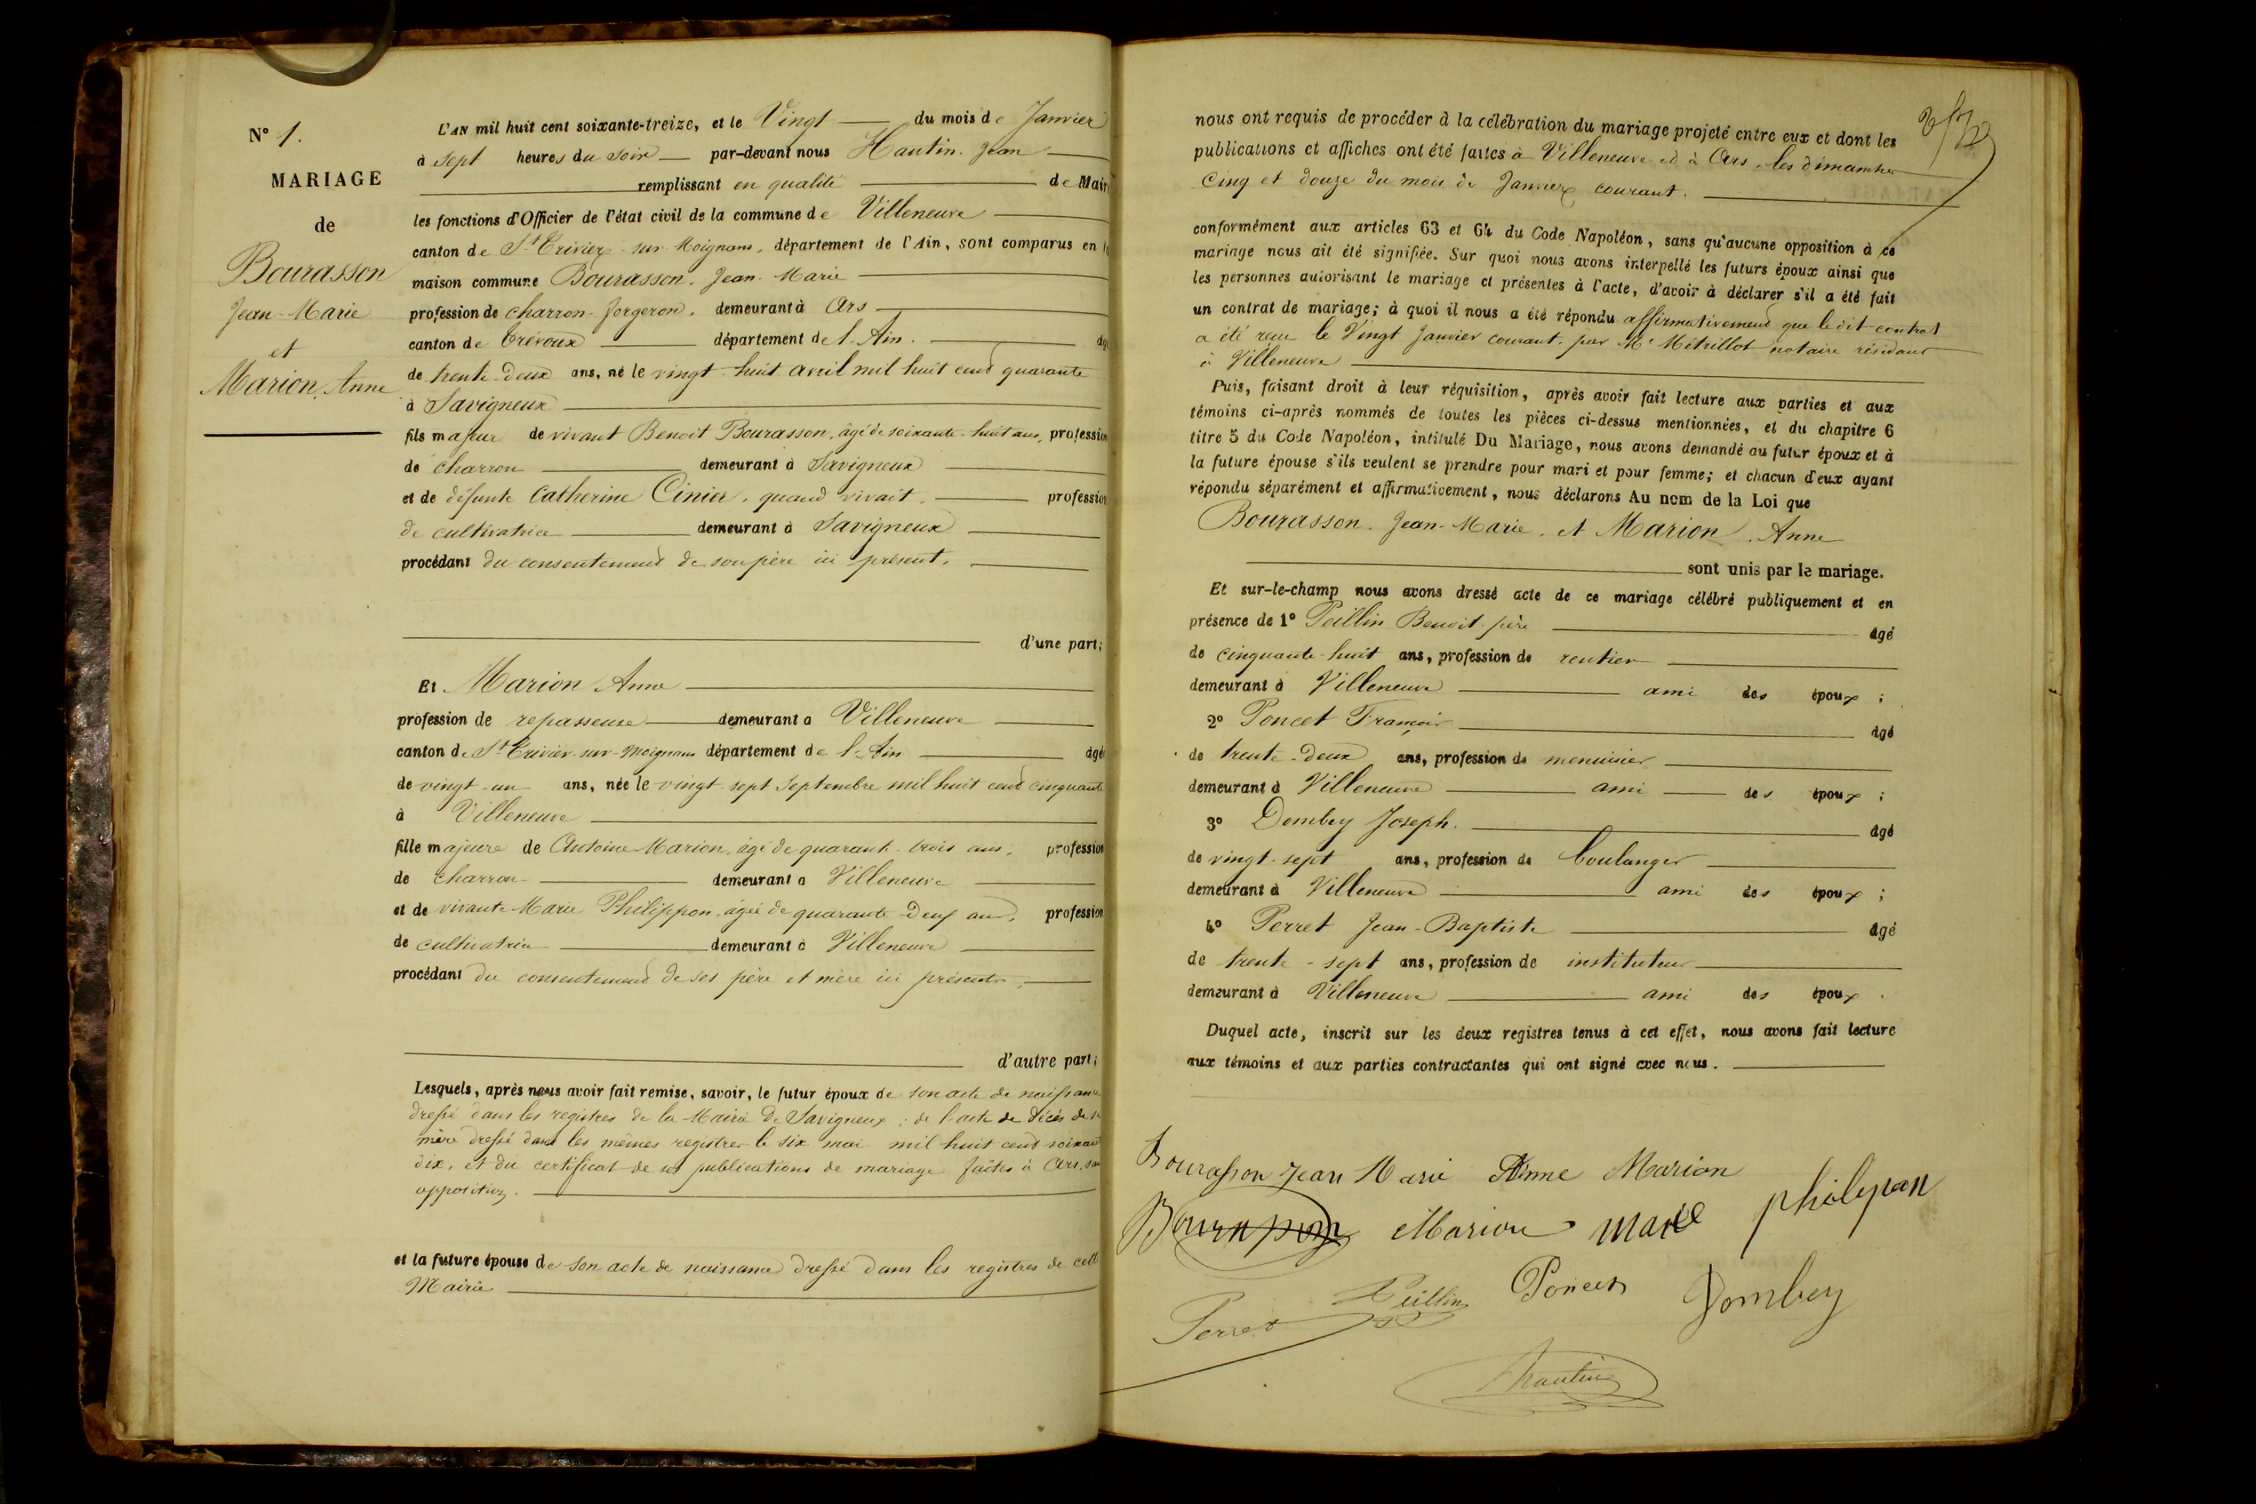 N° 1.
MARIAGE
de
Bourasson
Jean-Marie
et
Marion, Anne
L'AN mil huit cent soixante-treize, et le Vingt du mois de Janvier
à sept heures du soir par-devant nous Hautin. Jean
remplissant en qualité de Mair
les fonctions d'Officier de l'état civil de la commune de Villeneuve
canton de St Trivier-sur-Moignans, département de l'Ain, sont comparus en l
maison commune Bourasson, Jean-Marie
profession de charron-forgeron, demeurant à Ars
canton de Trévoux département de l'Ain. âg
de trente-deux ans, né le vingt-huit avril mil huit cent quarante
à Savigneux
fils majeur de vivant Benoit Bourasson, âgé de soixante-huit ans, profession
de charron demeurant à Savigneux
et de défunte Catherine Cinier, quand vivait, profession
de cultivatrice demeurant à Savigneux
procédant du consentement de son père ici présent.
d'une part;
Et Marion Anne
profession de repasseuse demeurant à Villeneuve
canton de St Trivier-sur-Moignans département de l'Ain âgé
de vingt-un ans, née le vingt-sept Septembre mil huit cent cinquante
à Villeneuve
fille majeure de Antoine Marion, âgé de quarante-trois ans, profession
de charron demeurant à Villeneuve
et de vivante Marie Philippon, âgée de quarante-deux ans, profession
de cultivatrice demeurant à Villeneuve
procédant du consentement de ses père et mère ici présents,
d'autre part;
Lesquels, après nous avoir fait remise, savoir, le futur époux de son acte de naissance
dressé dans les registres de la Mairie de Savigneux; de l'acte de décès de s
mère dressé dans les mêmes registres le six mai mil huit cent soixan
dix, et du certificat de ses publications de mariage faites à Ars, san
opposition.
et la future épouse de son acte de naissance dressé dans les registres de cette
Mairie
nous ont requis de procéder à la célébration du mariage projeté entre eux et dont les
publications et affiches ont été faites à Villeneuve et à Ars, les dimanches
cinq et douze du mois de Janvier courant.
conformément aux articles 63 et 64 du Code Napoléon, sans qu'aucune opposition à ce
mariage nous ait été signifiée. Sur quoi nous avons interpellé les futurs époux ainsi que
les personnes autorisant le mariage et présentes à l'acte, d'avoir à déclarer s'il a été fait
un contrat de mariage; à quoi il nous a été répondu affirmativement que le dit contrat
a été reçu le Vingt Janvier courant, par Me Métrillot notaire résidant
à Villeneuve
Puis, faisant droit à leur réquisition, après avoir fait lecture aux parties et aux
témoins ci-après nommés de toutes les pièces ci-dessus mentionnées, et du chapitre 6
titre 5 du Code Napoléon, intitulé Du Mariage, nous avons demandé au futur époux et à
la future épouse s'ils veulent se prendre pour mari et pour femme; et chacun d'eux ayant
répondu séparément et affirmativement, nous déclarons Au nom de la Loi que
Bourasson. Jean-Marie, et Marion, Anne
sont unis par le mariage.
Et sur-le-champ nous avons dressé acte de ce mariage célébré publiquement et en
présence de 1° Peillin Benoit père âgé
de cinquante-huit ans, profession de rentier
demeurant à Villeneuve ami des époux;
2° Poncet François âgé
de trente-deux ans, profession de menuisier
demeurant à Villeneuve ami des époux;
3° Dombey Joseph. âgé
de vingt-sept ans, profession de boulanger
demeurant à Villeneuve ami des époux;
4° Perret Jean-Baptiste âgé
de trente-sept ans, profession de instituteur
demeurant à Villeneuve ami des époux.
Duquel acte, inscrit sur les deux registres tenus à cet effet, nous avons fait lecture
aux témoins et aux parties contractantes qui ont signé avec nous.
Bourasson Jean Marie Anne Marion
Bourasson Marion Marie philipon
Perret Peillin Poncet Dombey
Hautin